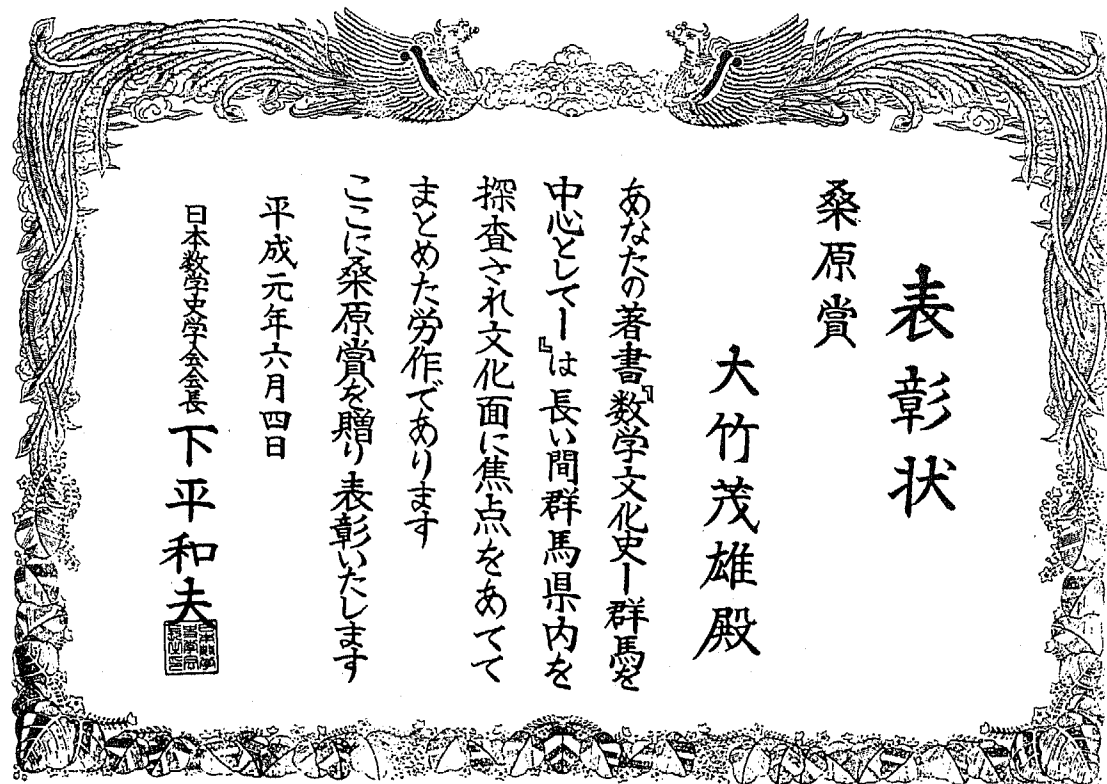 表彰状
桑原賞
大竹茂雄殿
あなたの著書『数学文化史ー群馬を
中心としてー』は長い間群馬県内を
探査され文化面に焦点をあてて
まとめた労作であります
ここに桑原賞を贈り表彰いたします
平成元年六月四日
日本数学史学会会長 下平和夫